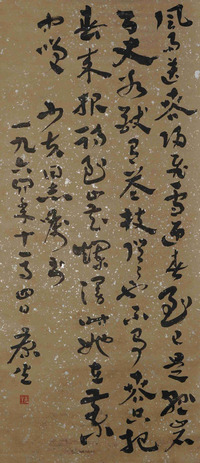 風雨送春归飛雪迎春到已是懸岩
百丈冰猶有花枝俏俏也不爭春只把
春来報待到山花爛漫時她在叢
中笑 同志屬书
一九六四年十一月四日